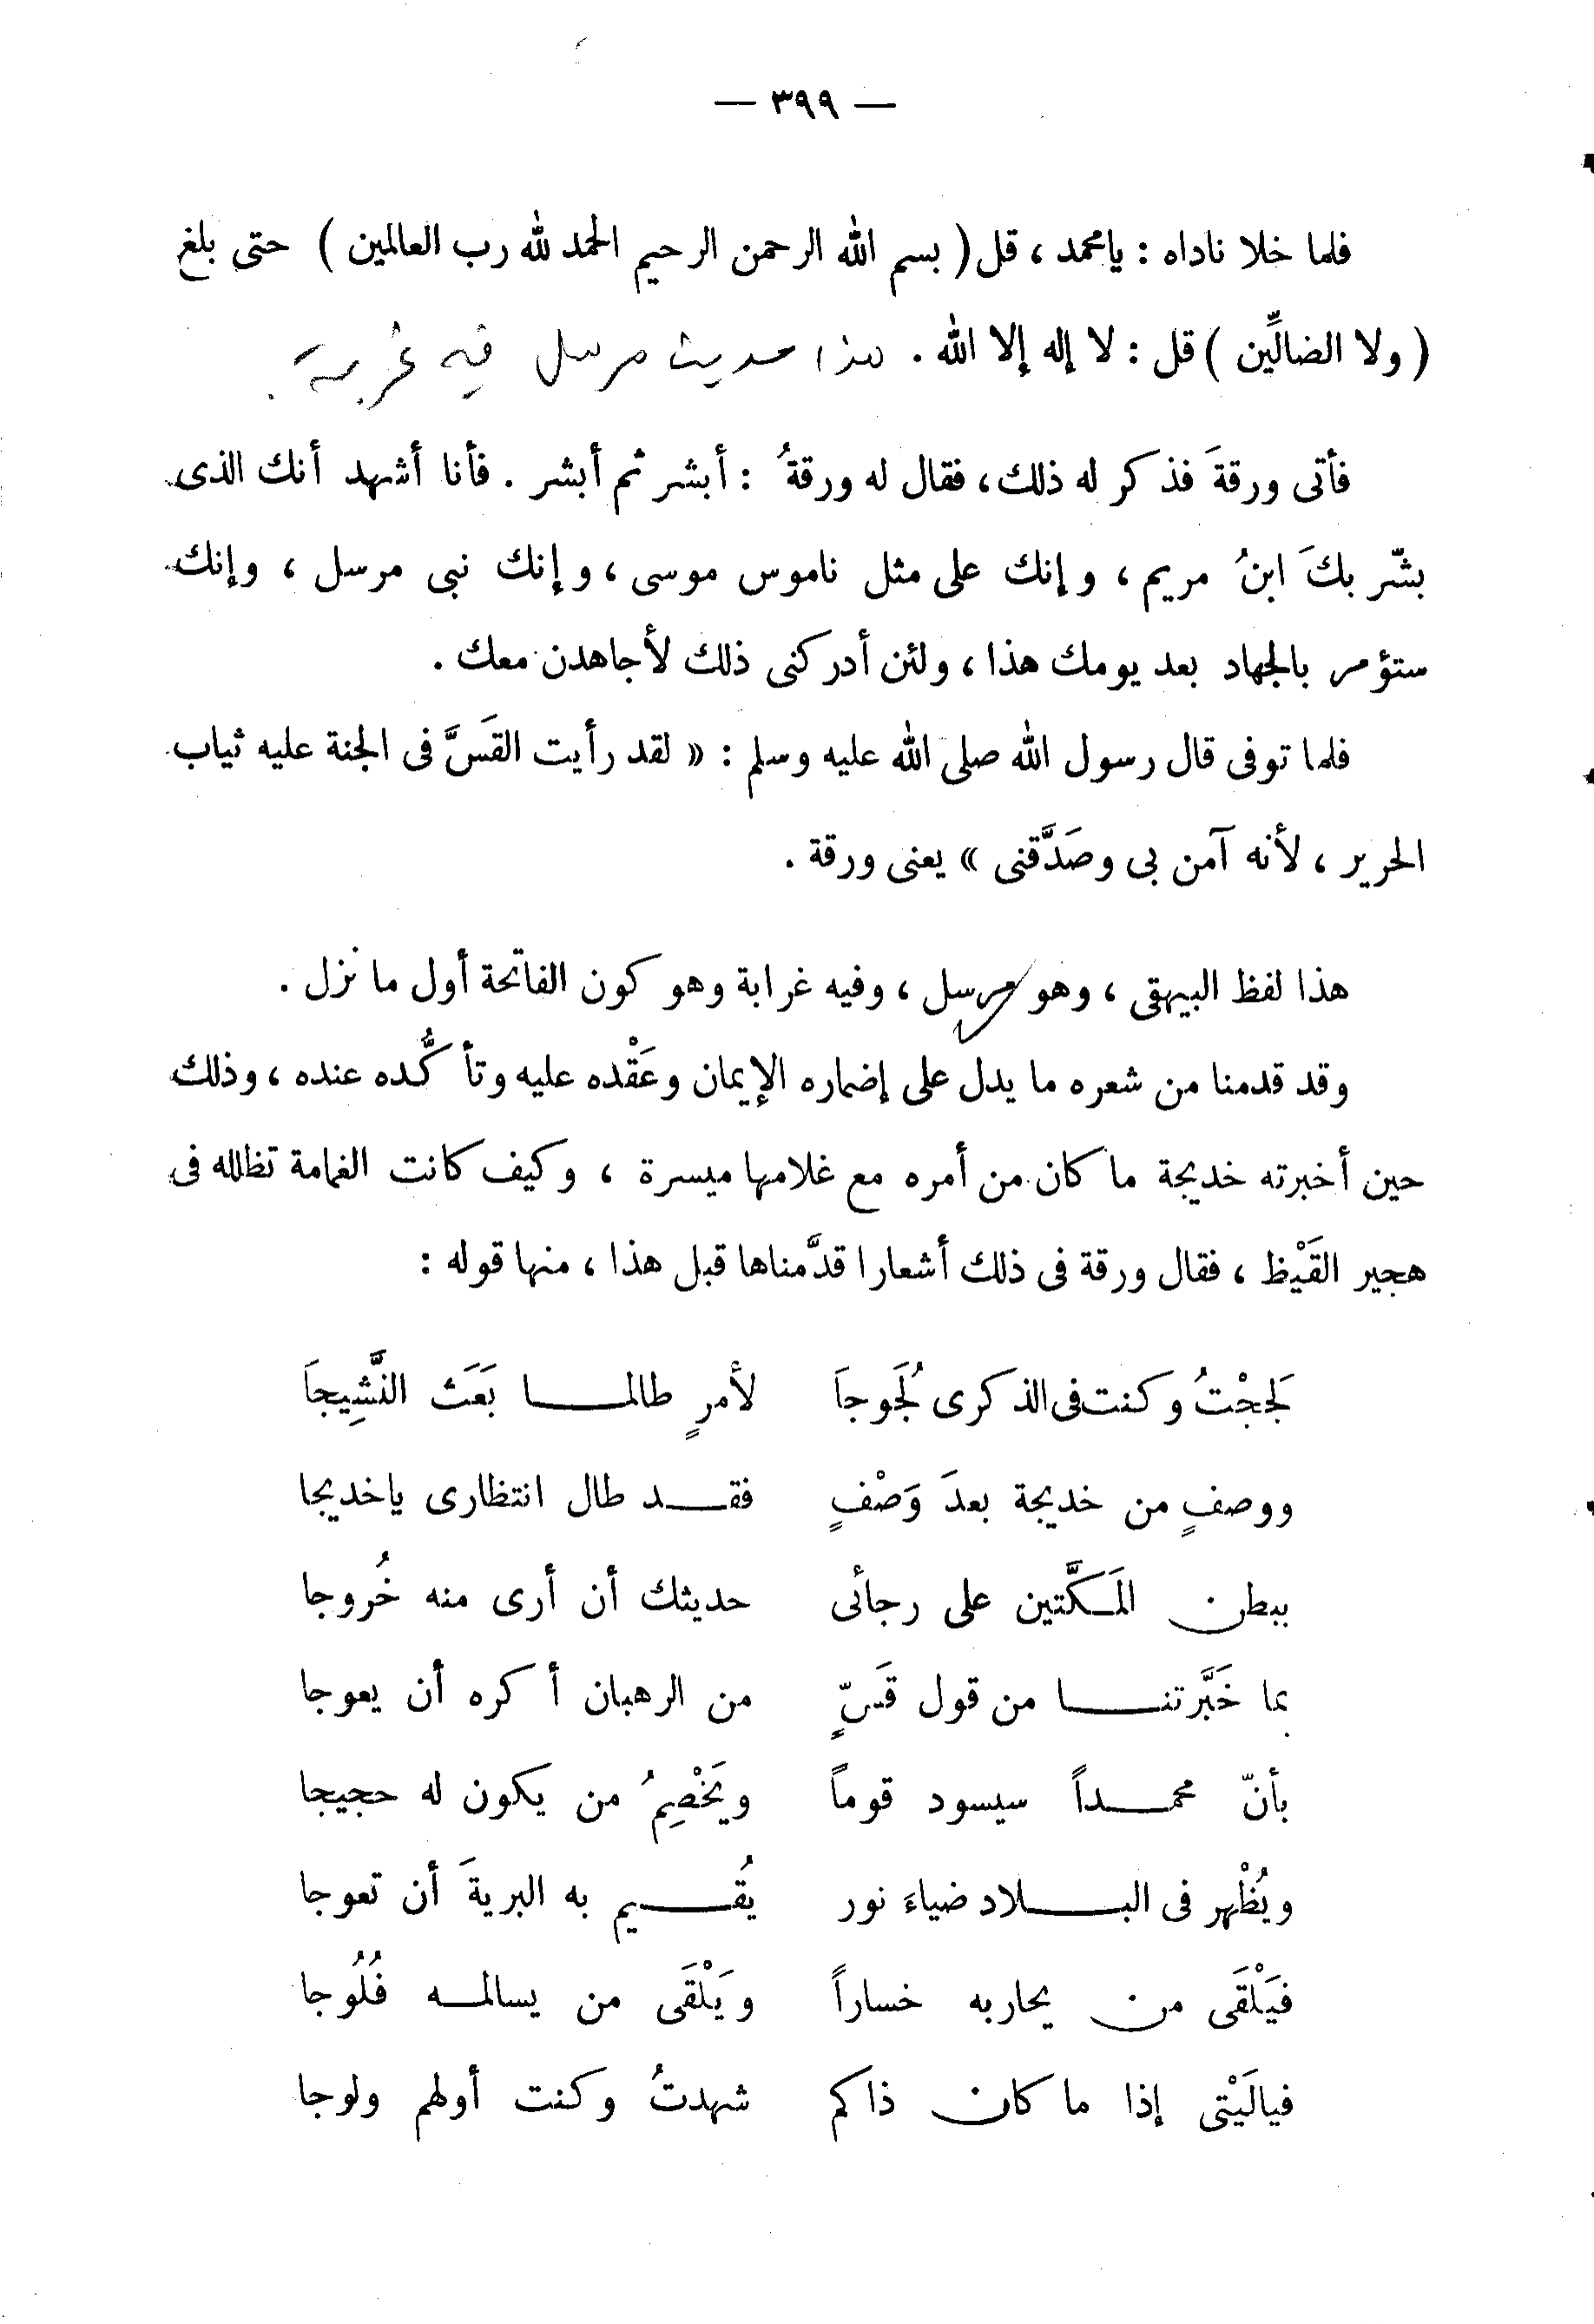 — ٣٩٩ —
فلما خلا ناداه : يامحمد ، قل ( بسم الله الرحمن الرحيم الحمد لله رب العالمين ) حتى بلغ
( ولا الضالِّين ) قل : لا إله إلا الله . هذا حديث مرسل فيه غرابة .
فأتى ورقةَ فذكر له ذلك ، فقال له ورقةُ : أبشر ثم أبشر . فأنا أشهد أنك الذى
بشّر بكَ ابنُ مريم ، وإنك على مثل ناموس موسى ، وإنك نبى مرسل ، وإنك
ستؤمر بالجهاد بعد يومك هذا ، ولئن أدركنى ذلك لأجاهدن معك .
فلما توفى قال رسول الله صلى الله عليه وسلم : « لقد رأيت القَسَّ فى الجنة عليه ثياب
الحرير ، لأنه آمن بى وصَدَّقنى » يعنى ورقة .
هذا لفظ البيهقى ، وهو مرسل ، وفيه غرابة وهو كون الفاتحة أول ما نزل .
وقد قدمنا من شعره ما يدل على إضماره الإيمان وعَقْده عليه وتأكُّده عنده ، وذلك
حين أخبرته خديجة ما كان من أمره مع غلامها ميسرة ، وكيف كانت الغمامة تظلله فى
هجير القَيْظ ، فقال ورقة فى ذلك أشعارا قدَّمناها قبل هذا ، منها قوله :
لَججْتُ وكنت فى الذكرى لُجَوجاَ لأمرٍ طالمـــا بَعَث النَّشِيجاَ
ووصفٍ من خديجة بعدَ وَصْفٍ فقـــد طال انتظارى ياخديجا
ببطن المَكَّتين على رجائى حديثك أن أرى منه خُروجا
بما خَبَّرتنـــا من قول قَسّ من الرهبان أكره أن يعوجا
بأنّ محمـــداً سيسود قوماً ويَخْصِمُ من يكون له حجيجا
ويُظْهر فى البـــلاد ضياءَ نور يُقـــيم به البريةَ أن تعوجا
فيَلْقَى من يحاربه خساراً ويَلْقَى من يسالمــه فُلُوجا
فيالَيْتى إذا ما كان ذاكم شهدتُ وكنت أولهم ولوجا